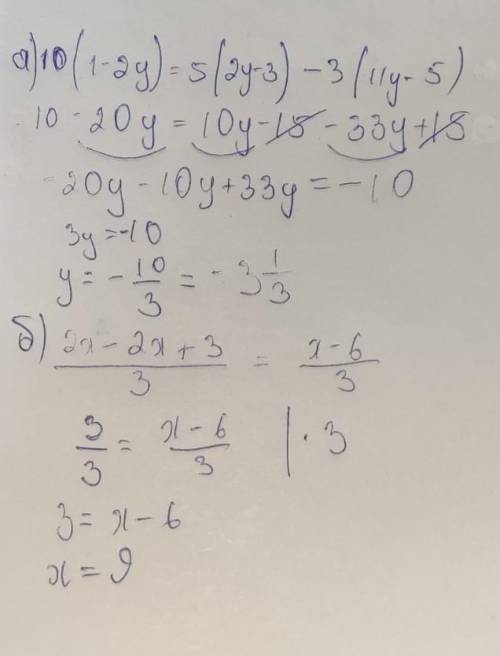 а) 10(1-2y)=5(2y-3)-3(11y-5)
10-20y=10y-15-33y+15
-20y-10y+33y=-10
3y=-10
y=-10/3=-3 1/3
б) (2x-2x+3)/3 = (x-6)/3
3/3 = (x-6)/3 | · 3
3=x-6
x=9